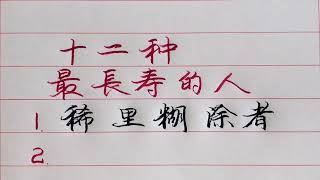 十二种
最長寿的人
1. 稀里糊涂者
2.